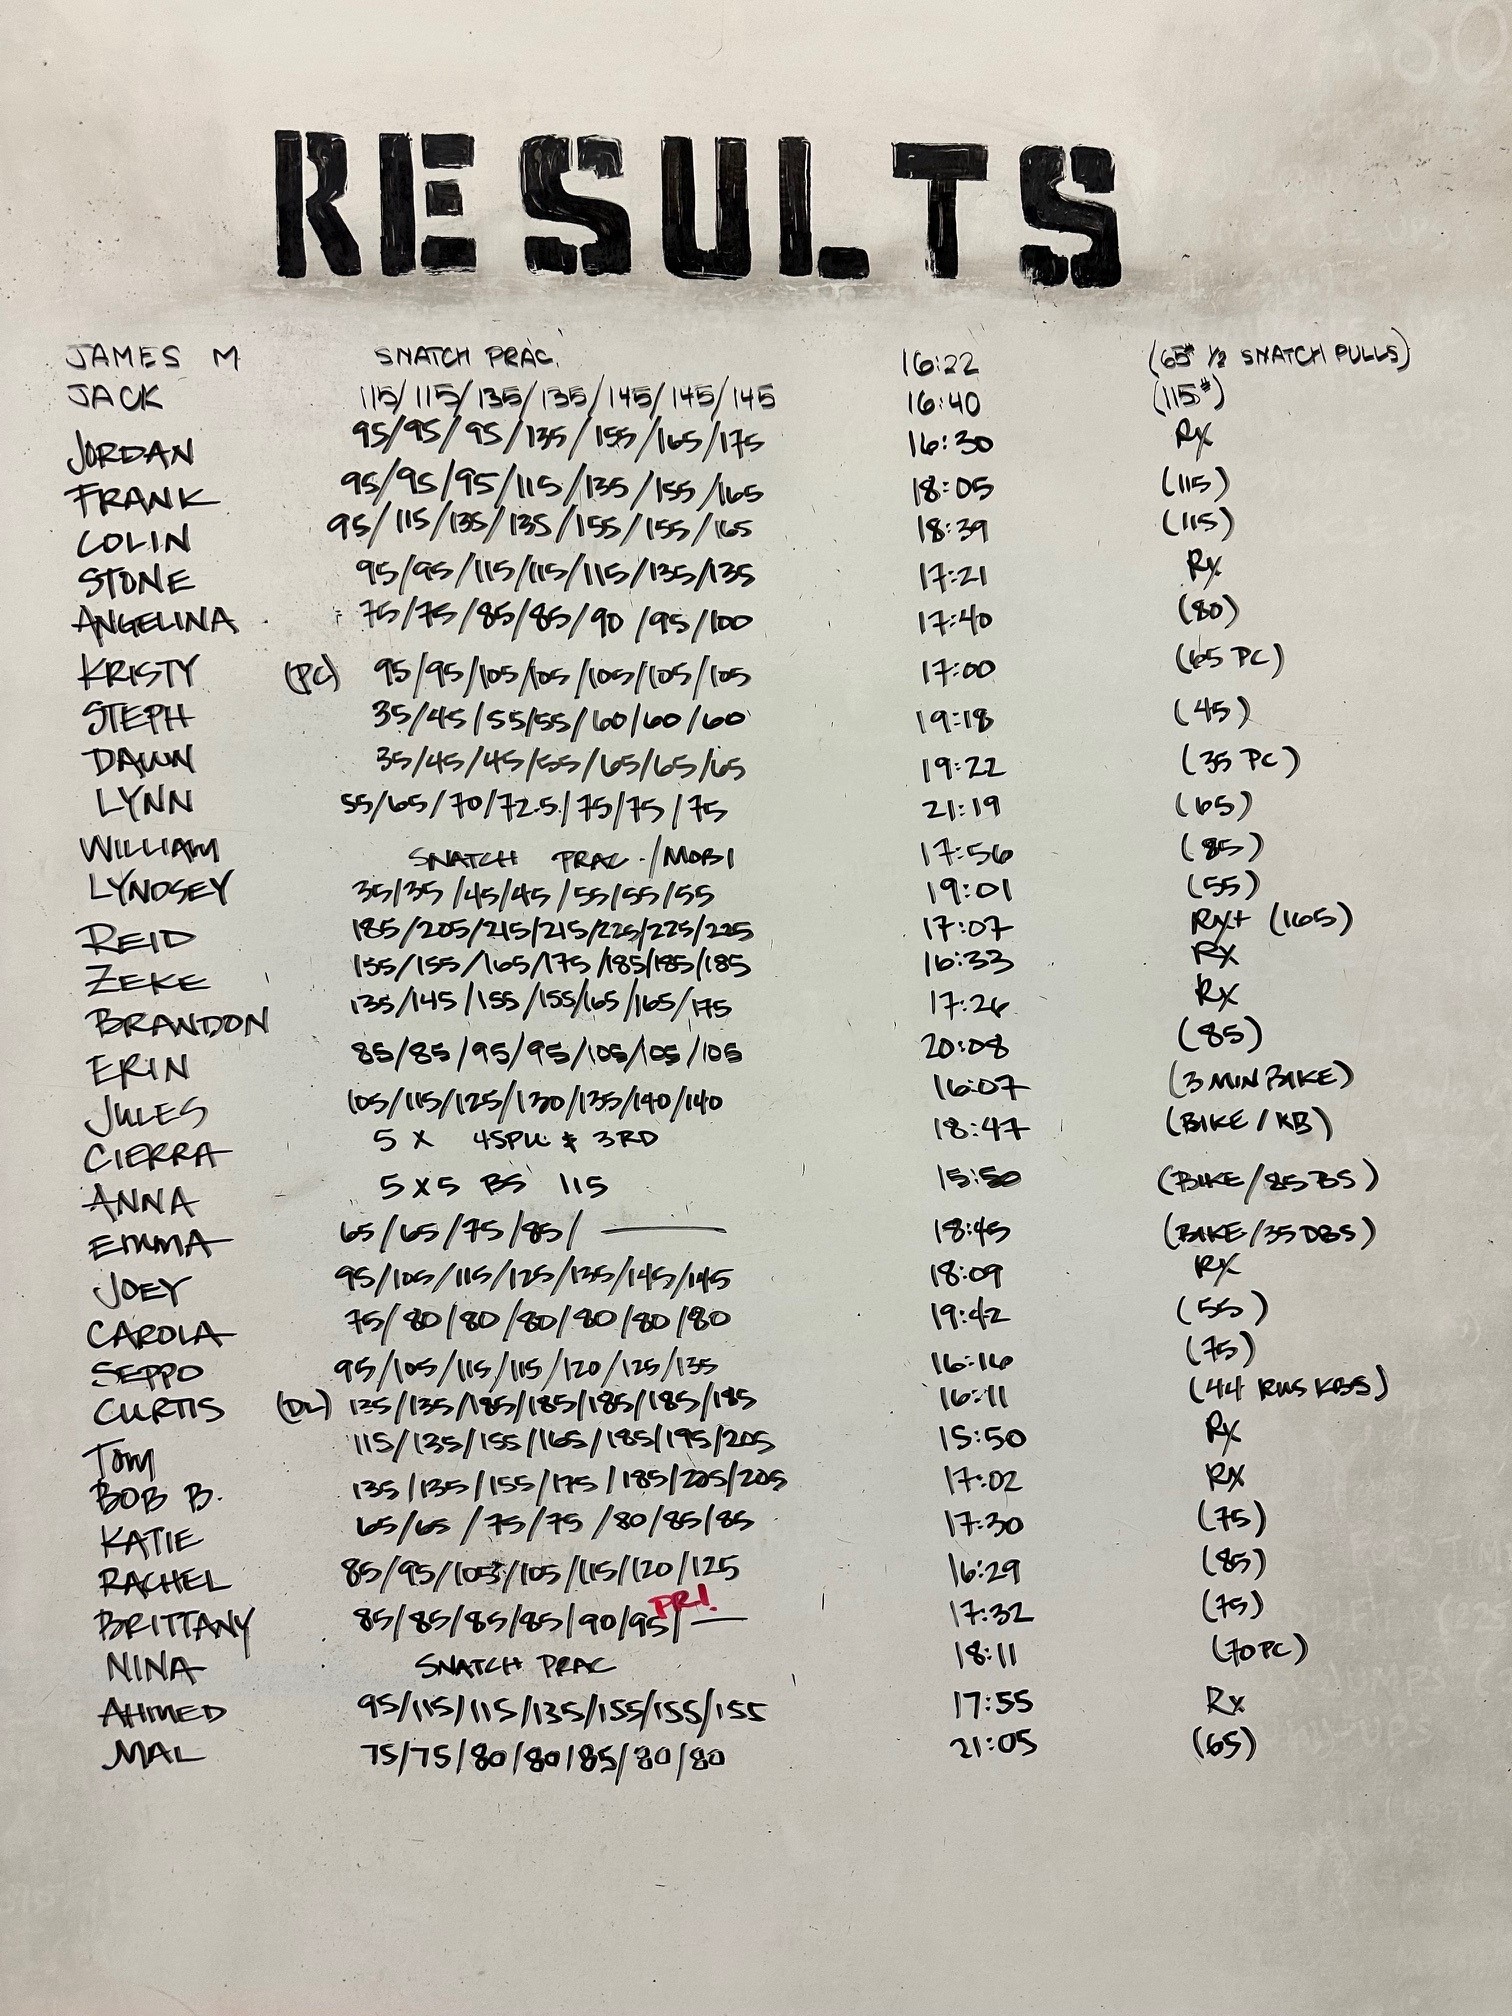 RESULTS
JAMES M SNATCH PRAC. 16:22 (65# 1/2 SNATCH PULLS)
JACK 115/115/135/135/145/145/145 16:40 (115#)
JORDAN 95/95/95/135/155/165/175 16:30 Rx
FRANK 95/95/95/115/135/155/165 18:05 (115)
COLIN 95/115/135/135/155/155/165 18:39 (115)
STONE 95/95/115/115/115/135/135 17:21 Rx
ANGELINA 75/75/85/85/90/95/100 17:40 (80)
KRISTY (PC) 95/95/105/105/105/105/105 17:00 (65 PC)
STEPH 35/45/55/55/60/60/60 19:18 (45)
DAWN 35/45/45/55/65/65/65 19:22 (35 PC)
LYNN 55/65/70/72.5/75/75/75 21:19 (65)
WILLIAM SNATCH PRAC./MOBI 17:56 (85)
LYNDSEY 35/35/45/45/55/55/55 19:01 (55)
REID 185/205/215/215/225/225/225 17:07 Rx+ (165)
ZEKE 155/155/165/175/185/185/185 16:33 Rx
BRANDON 135/145/155/155/165/165/175 17:26 Rx
ERIN 85/85/95/95/105/105/105 20:08 (85)
JULES 105/115/125/130/135/140/140 16:07 (3 MIN BIKE)
CIERRA 5 X 4SPU & 3RD 18:47 (BIKE/KB)
ANNA 5 X 5 BS 115 15:50 (BIKE/85 BS)
EMMA 65/65/75/85/ — 18:45 (BIKE/35 DBS)
JOEY 95/105/115/125/135/145/145 18:09 Rx
CAROLA 75/80/80/80/80/80/80 19:42 (55)
SEPPO 95/105/115/115/120/125/135 16:16 (75)
CURTIS (DL) 135/135/185/185/185/185/185 16:11 (44 RUS KBS)
TOM 115/135/155/165/185/195/205 15:50 Rx
BOB B. 135/135/155/175/185/205/205 17:02 Rx
KATIE 65/65/75/75/80/85/85 17:30 (75)
RACHEL 85/95/105/105/115/120/125 16:29 (85)
BRITTANY 85/85/85/85/90/95/ — PR! 17:32 (75)
NINA SNATCH PRAC 18:11 (70 PC)
AHMED 95/115/115/135/155/155/155 17:55 Rx
MAL 75/75/80/80/85/80/80 21:05 (65)